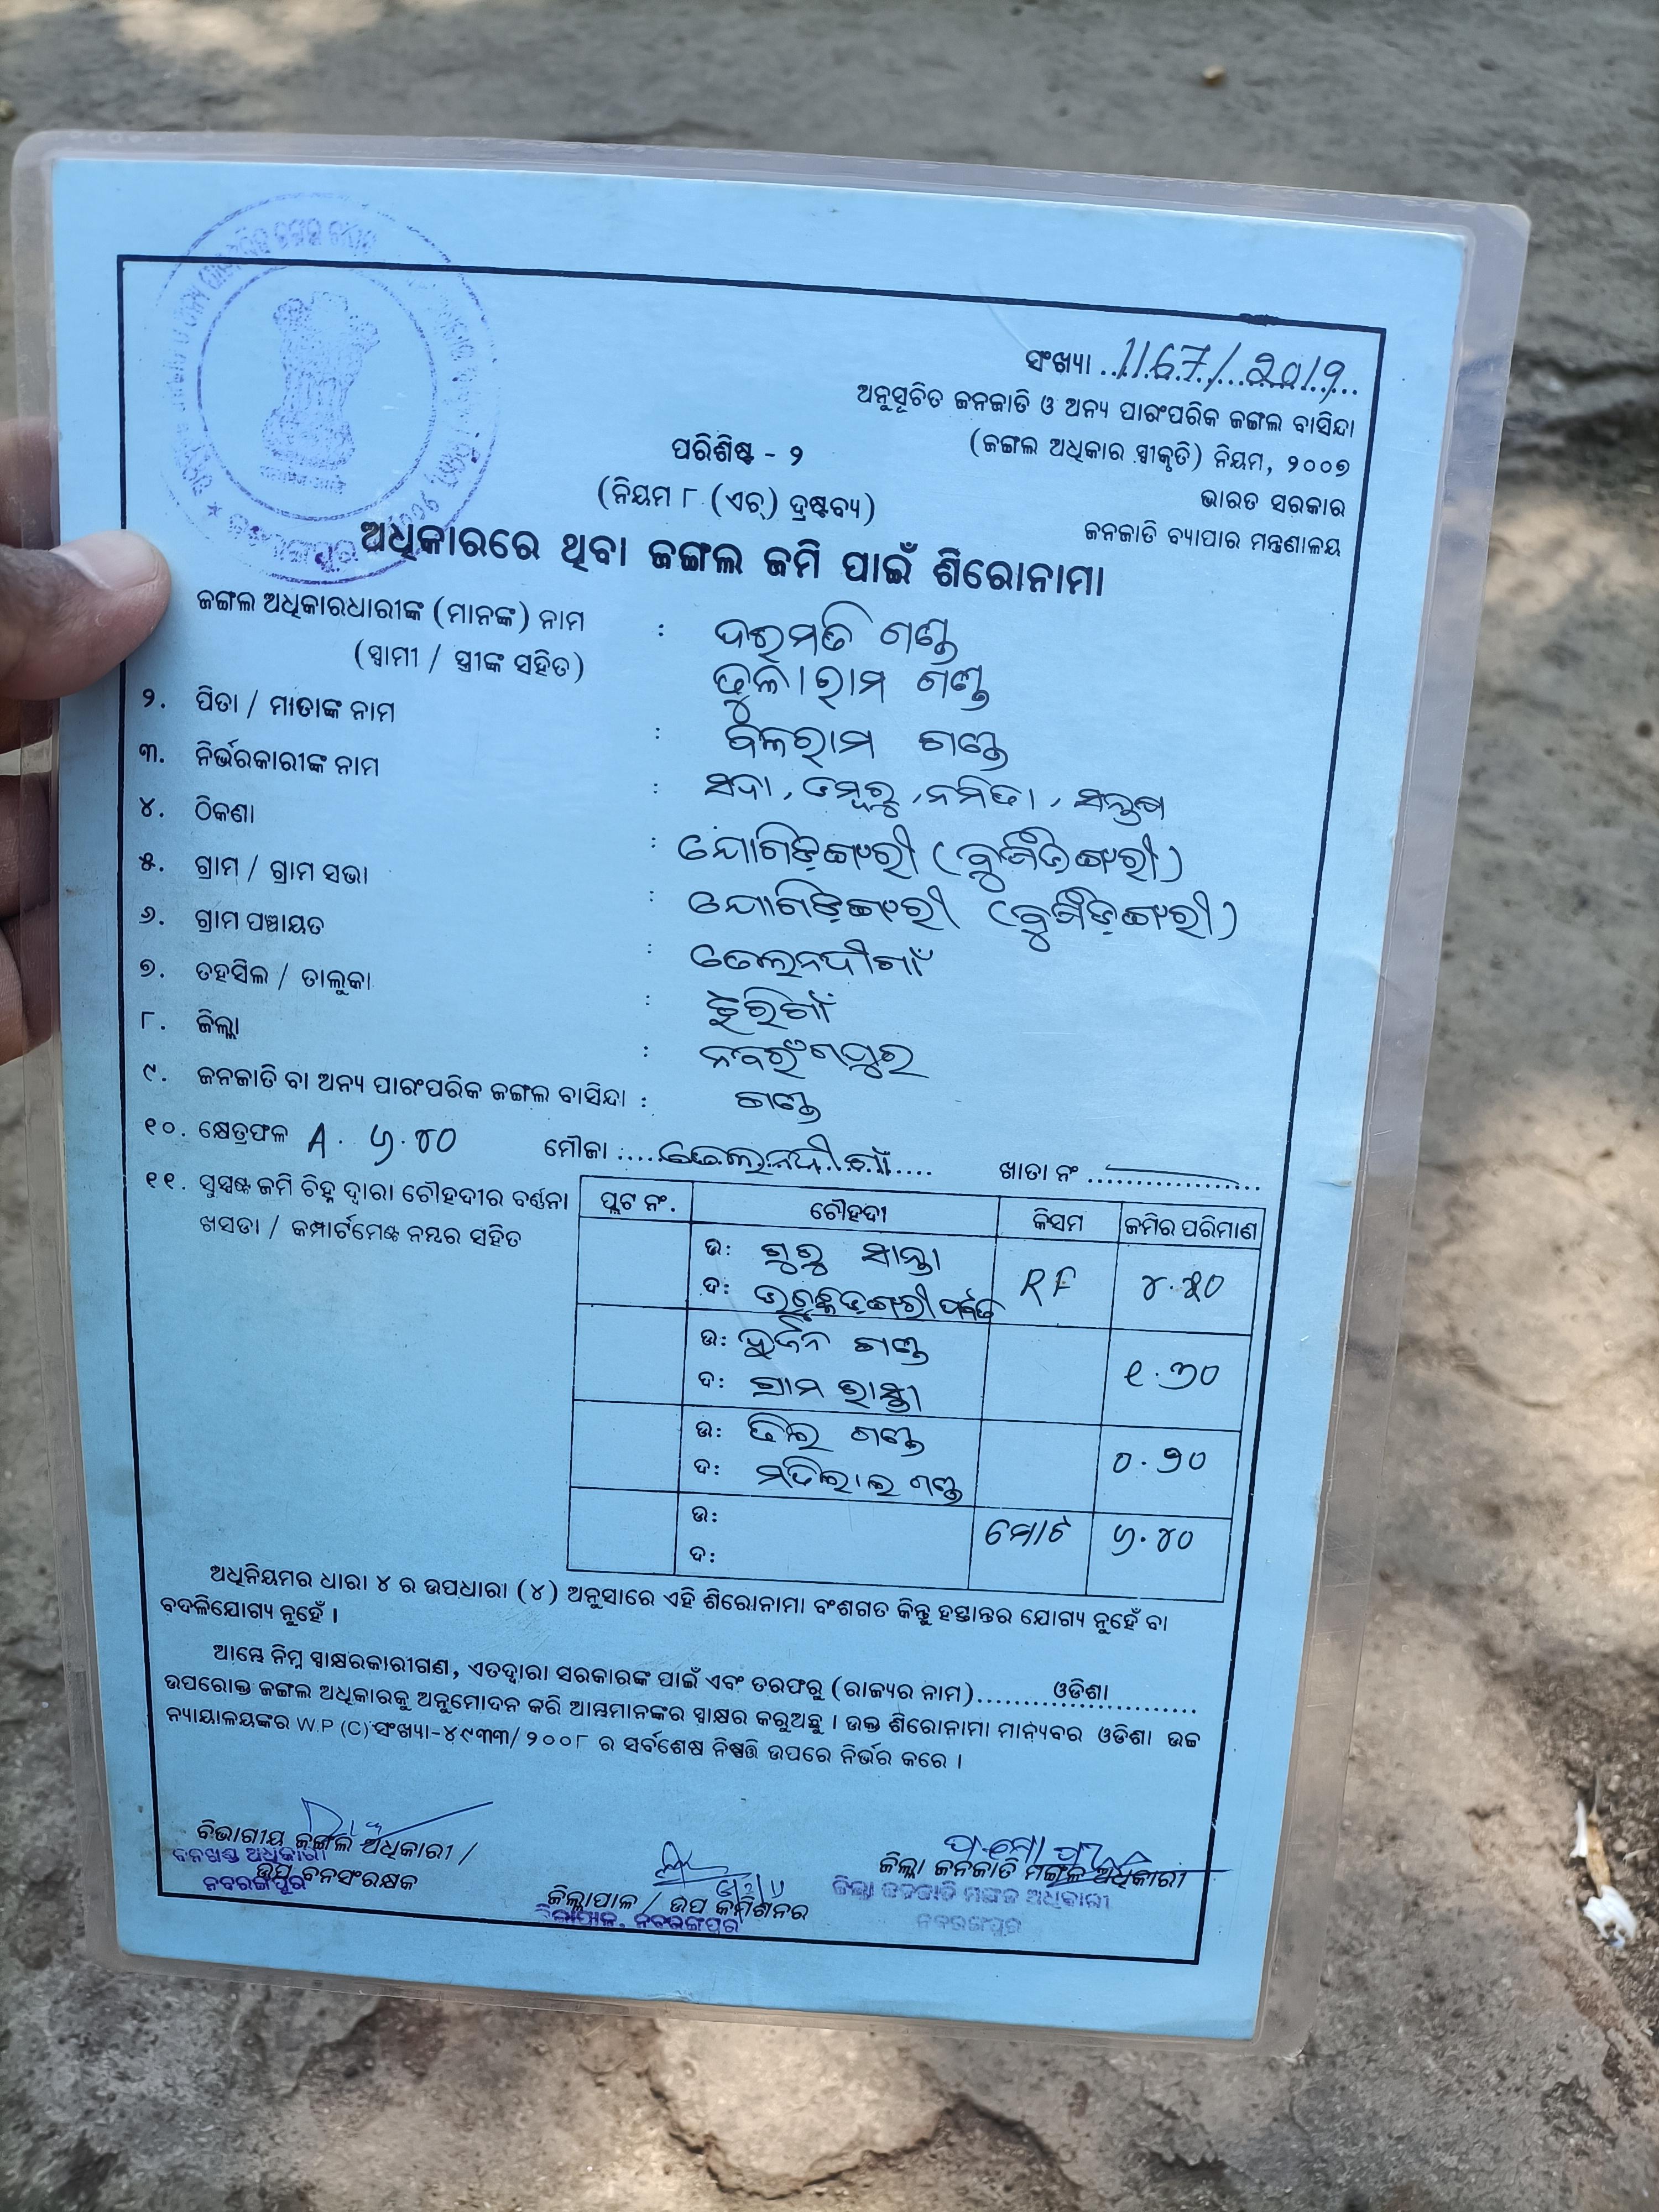 ସଂଖ୍ୟା ..1167/2019...
ଅନୁସୂଚିତ ଜନଜାତି ଓ ଅନ୍ୟ ପାରଂପରିକ ଜଙ୍ଗଲ ବାସିନ୍ଦା
(ଜଙ୍ଗଲ ଅଧିକାର ସ୍ୱୀକୃତି) ନିୟମ, ୨୦୦୭
ଭାରତ ସରକାର
ଜନଜାତି ବ୍ୟାପାର ମନ୍ତ୍ରଣାଳୟ
ପରିଶିଷ୍ଟ - ୨
(ନିୟମ ୮ (ଏଚ୍) ଦ୍ରଷ୍ଟବ୍ୟ)
ଅଧିକାରରେ ଥିବା ଜଙ୍ଗଲ ଜମି ପାଇଁ ଶିରୋନାମା
ଜଙ୍ଗଲ ଅଧିକାରଧାରୀଙ୍କ (ମାନଙ୍କ) ନାମ : ଦଇମତି ଗଣ୍ଡ
(ସ୍ୱାମୀ / ସ୍ତ୍ରୀଙ୍କ ସହିତ) ତୁଳାରାମ ଗଣ୍ଡ
୨. ପିତା / ମାତାଙ୍କ ନାମ : ବଳରାମ ଗଣ୍ଡ
୩. ନିର୍ଭରକାରୀଙ୍କ ନାମ : ସଦା, ଡମ୍ବରୁ, ନମିତା, ସନ୍ତୋଷ
୪. ଠିକଣା : ଯୋଗିଡ଼ଙ୍ଗରୀ
୫. ଗ୍ରାମ / ଗ୍ରାମ ସଭା : ଯୋଗିଡ଼ଙ୍ଗରୀ
୬. ଗ୍ରାମ ପଞ୍ଚାୟତ : ତେଲନଦୀଗାଁ
୭. ତହସିଲ / ତାଲୁକା : ଝରିଗାଁ
୮. ଜିଲ୍ଲା : ନବରଂଗପୁର
୯. ଜନଜାତି ବା ଅନ୍ୟ ପାରଂପରିକ ଜଙ୍ଗଲ ବାସିନ୍ଦା : ଗଣ୍ଡ
୧୦. କ୍ଷେତ୍ରଫଳ A. ୬.୪୦ ମୌଜା ..... ତେଲନଦୀଗାଁ .... ଖାତା ନଂ ..................
୧୧. ସୁସ୍ପଷ୍ଟ ଜମି ଚିହ୍ନ ଦ୍ୱାରା ଚୌହଦୀର ବର୍ଣ୍ଣନା
ଖସଡା / କମ୍ପାର୍ଟମେଣ୍ଟ ନମ୍ବର ସହିତ
ପ୍ଲଟ ନଂ. ଚୌହଦୀ କିସମ ଜମିର ପରିମାଣ
ଉ: ଗୁରୁ ସାନ୍ତା RF ୪.୫୦
ଦ: ପର୍ବତ
ଉ: ଗଣ୍ଡ ୧.୩୦
ଦ: ଗ୍ରାମ ରାସ୍ତା
ଉ: ଗଣ୍ଡ ୦.୭୦
ଦ: ମତିଲାଲ ଗଣ୍ଡ
ଉ: ମୋଟ ୬.୪୦
ଦ:
ଅଧିନିୟମର ଧାରା ୪ ର ଉପଧାରା (୪) ଅନୁସାରେ ଏହି ଶିରୋନାମା ବଂଶଗତ କିନ୍ତୁ ହସ୍ତାନ୍ତର ଯୋଗ୍ୟ ନୁହେଁ ବା
ବଦଳିଯୋଗ୍ୟ ନୁହେଁ ।
ଆମ୍ଭେ ନିମ୍ନ ସ୍ୱାକ୍ଷରକାରୀଗଣ, ଏତଦ୍ୱାରା ସରକାରଙ୍କ ପାଇଁ ଏବଂ ତରଫରୁ (ରାଜ୍ୟର ନାମ)........ଓଡିଶା........
ଉପରୋକ୍ତ ଜଙ୍ଗଲ ଅଧିକାରକୁ ଅନୁମୋଦନ କରି ଆମ୍ଭମାନଙ୍କର ସ୍ୱାକ୍ଷର କରୁଅଛୁ । ଉକ୍ତ ଶିରୋନାମା ମାନ୍ୟବର ଓଡିଶା ଉଚ୍ଚ
ନ୍ୟାୟାଳୟଙ୍କର W.P (C) ସଂଖ୍ୟା-୪୯୩୩/୨୦୦୮ ର ସର୍ବଶେଷ ନିଷ୍ପତ୍ତି ଉପରେ ନିର୍ଭର କରେ ।
ବିଭାଗୀୟ ଜଙ୍ଗଲ ଅଧିକାରୀ /
ଉପ ବନସଂରକ୍ଷକ
ବନଖଣ୍ଡ ଅଧିକାରୀ
ନବରଙ୍ଗପୁର
ଜିଲ୍ଲାପାଳ / ଉପ କମିଶନର
ଜିଲ୍ଲାପାଳ, ନବରଙ୍ଗପୁର
ଜିଲ୍ଲା ଜନଜାତି ମଙ୍ଗଳ ଅଧିକାରୀ
ଜିଲ୍ଲା ଜନଜାତି ମଙ୍ଗଳ ଅଧିକାରୀ
ନବରଙ୍ଗପୁର